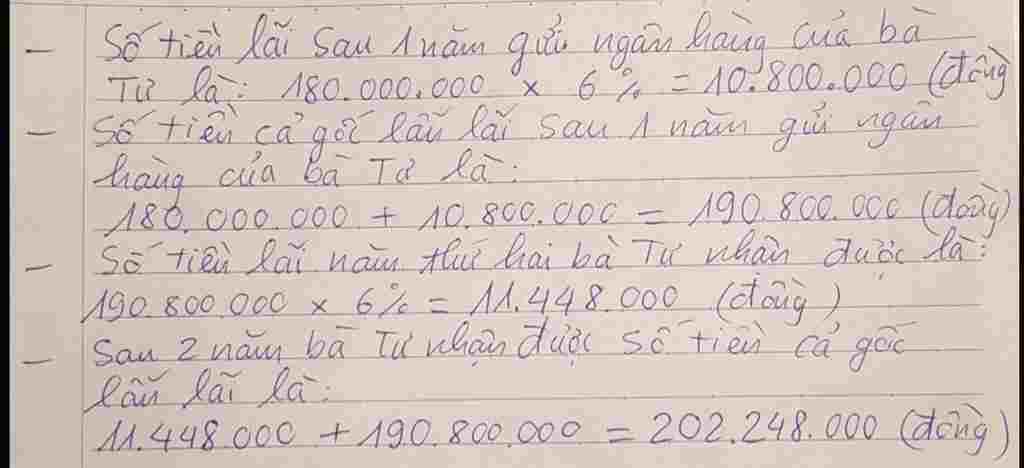 - Số tiền lãi sau 1 năm gửi ngân hàng của bà
Tư là: 180.000.000 x 6% = 10.800.000 (đồng
- Số tiền cả gốc lẫn lãi sau 1 năm gửi ngân
hàng của bà Tư là:
180.000.000 + 10.800.000 = 190.800.000 (đồng)
- Số tiền lãi năm thứ hai bà Tư nhận được là:
190.800.000 x 6% = 11.448.000 (đồng)
- Sau 2 năm bà Tư nhận được số tiền cả gốc
lẫn lãi là:
11.448.000 + 190.800.000 = 202.248.000 (đồng)